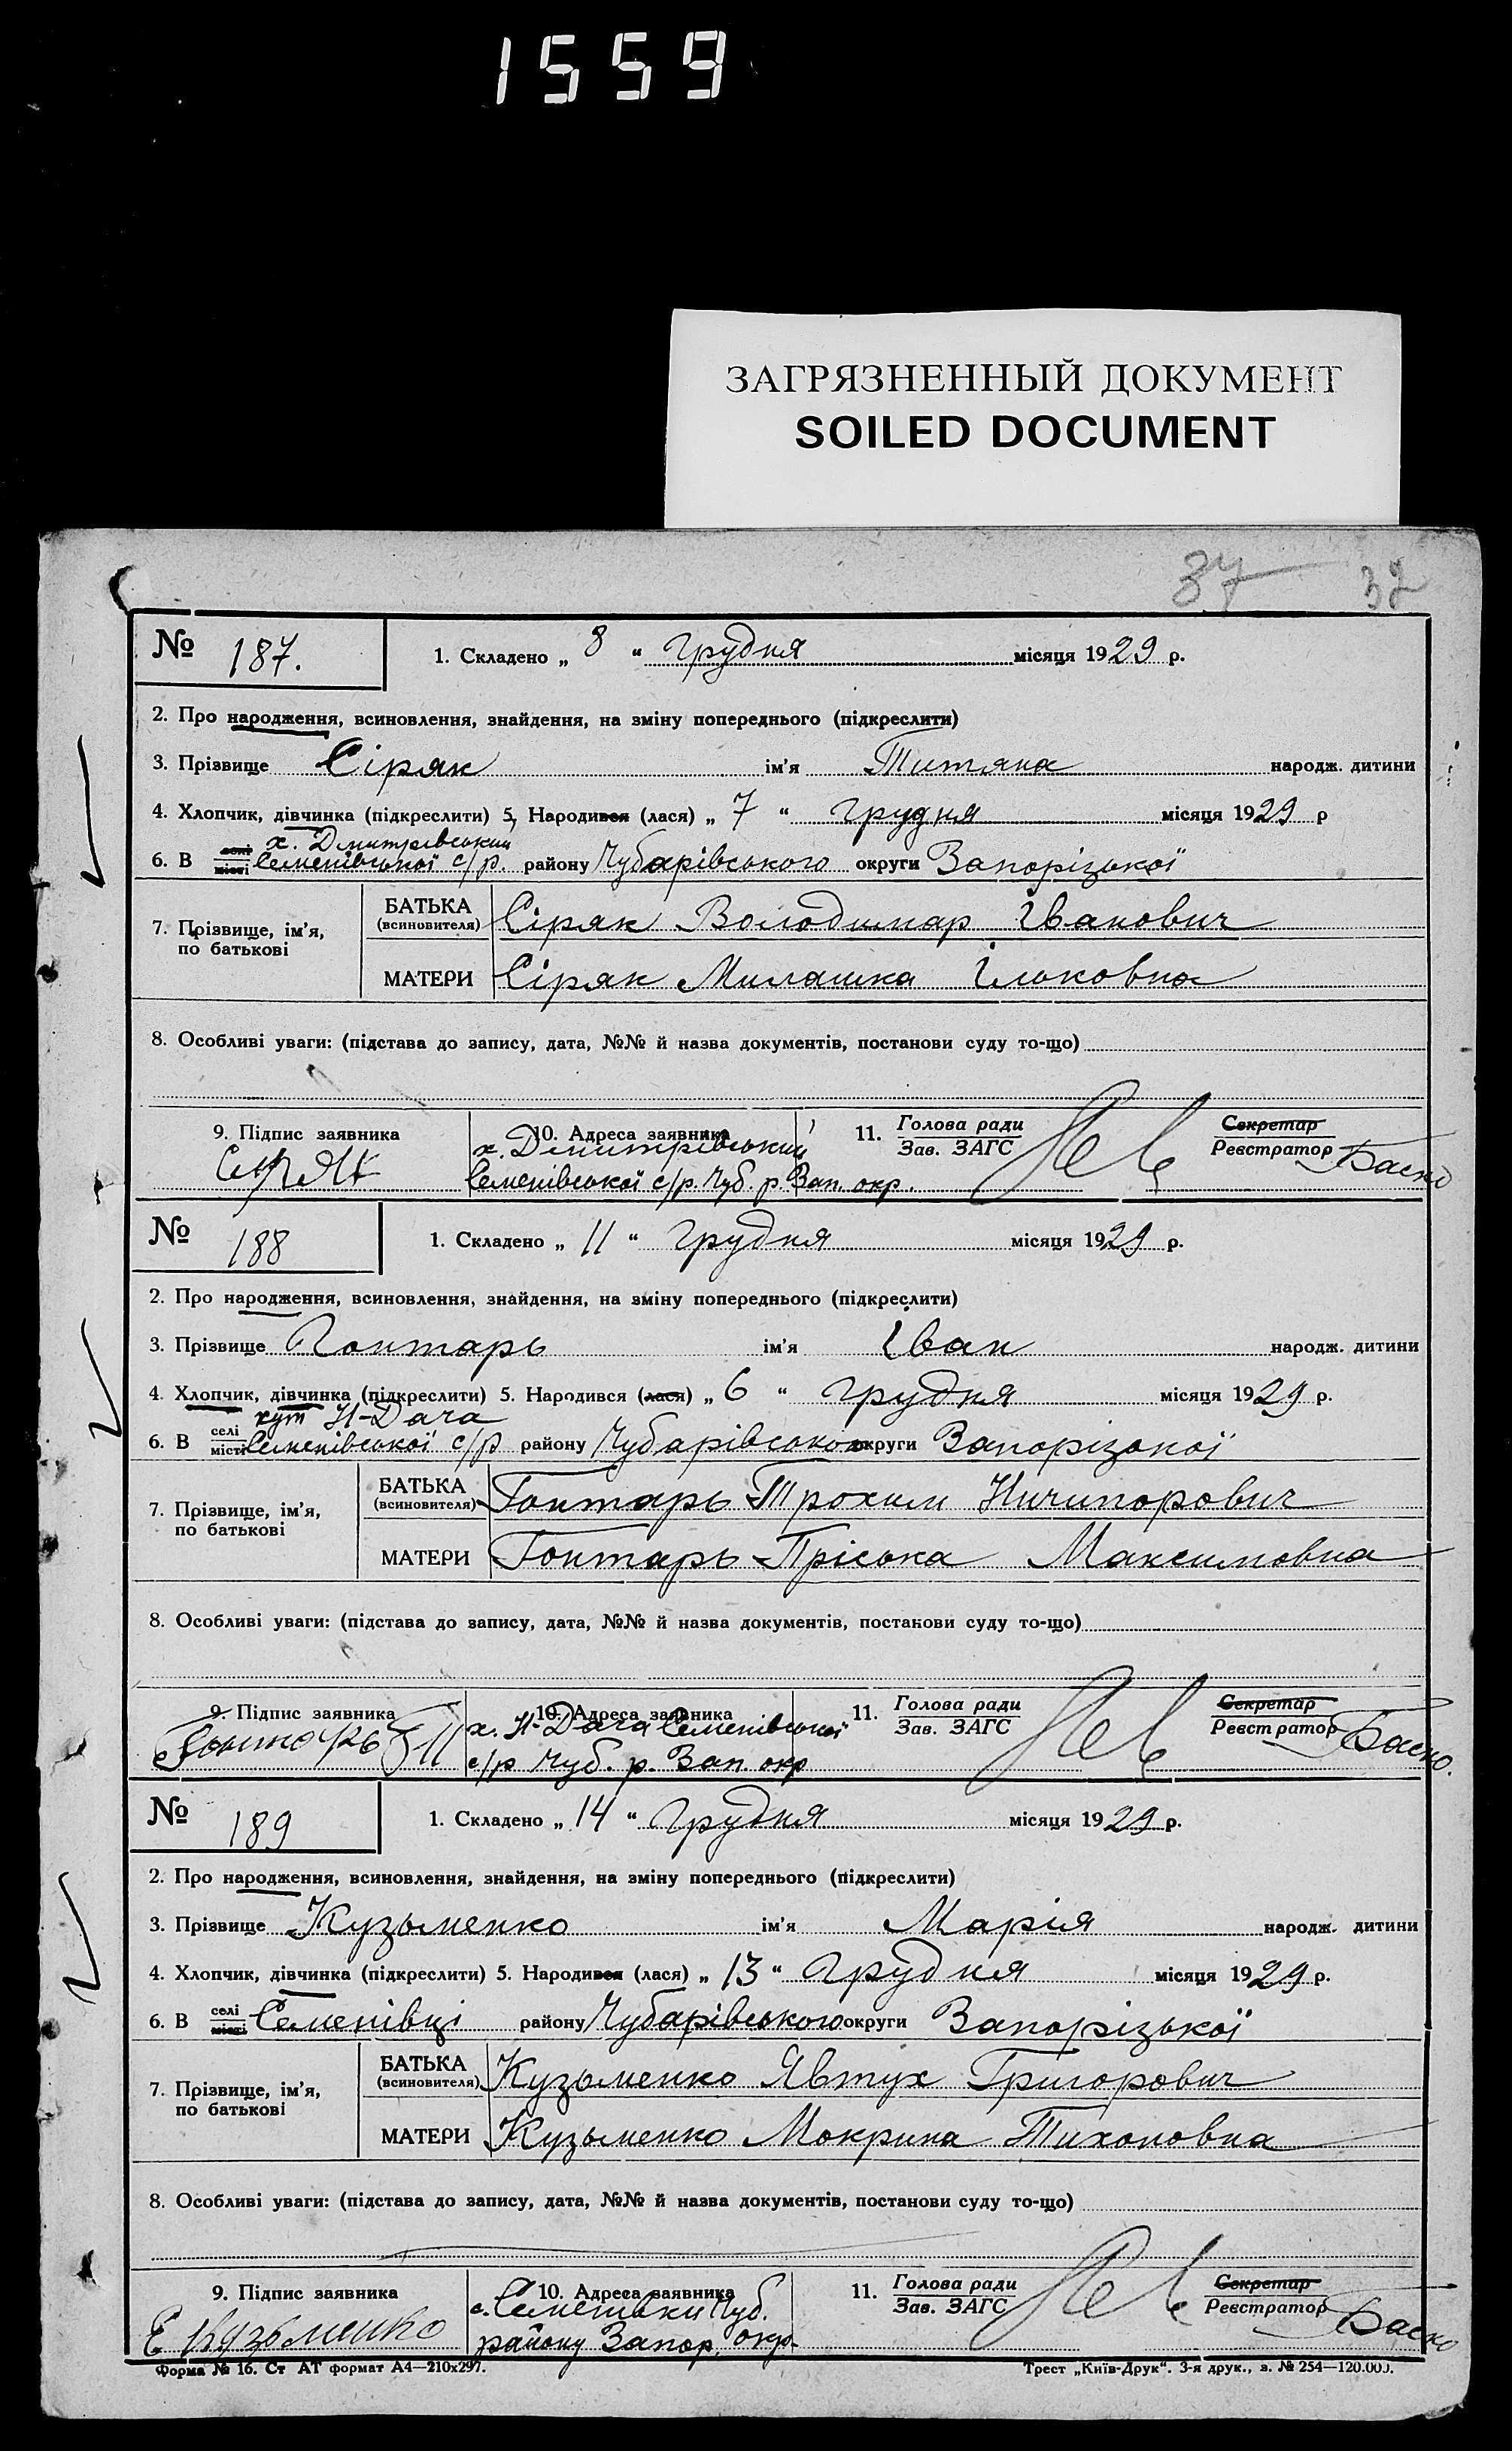 1559
ЗАГРЯЗНЕННЫЙ ДОКУМЕНТ
SOILED DOCUMENT
37 32
№ 187. 1. Складено „ 8 “ Грудня місяця 1929 р.
2. Про народження, всиновлення, знайдення, на зміну попереднього (підкреслити)
3. Прізвище Сіряк ім'я Титяна народж. дитини
4. Хлопчик, дівчинка (підкреслити) 5. Народився (лася) „ 7 “ грудня місяця 1929 р
х. Дмитрівський
6. В селі місті Семенівської с/р. району Чубарівського округи Запорізької
7. Прізвище, ім'я, по батькові
БАТЬКА (всиновителя) Сіряк Володимар Іванович
МАТЕРИ Сіряк Милашка Ільковна
8. Особливі уваги: (підстава до запису, дата, №№ й назва документів, постанови суду то-що)
9. Підпис заявника 10. Адреса заявника 11. Голова ради Секретар
х. Дмитрівський Зав. ЗАГС Реєстратор Баско
Семенівської с/р. Чуб. р. Зап. окр.
№ 188 1. Складено „ 11 “ Грудня місяця 1929 р.
2. Про народження, всиновлення, знайдення, на зміну попереднього (підкреслити)
3. Прізвище Гонтарь ім'я Іван народж. дитини
4. Хлопчик, дівчинка (підкреслити) 5. Народився (лася) „ 6 “ грудня місяця 1929 р.
хут Н-Дача
6. В селі місті Семенівської с/р району Чубарівсько округи Запорізької
7. Прізвище, ім'я, по батькові
БАТЬКА (всиновителя) Гонтарь Трохим Ничипорович
МАТЕРИ Гонтарь Пріська Максимовна
8. Особливі уваги: (підстава до запису, дата, №№ й назва документів, постанови суду то-що)
9. Підпис заявника 10. Адреса заявника 11. Голова ради Секретар
Гонтарь х. Н-Дача Семенівської Зав. ЗАГС Реєстратор Баско.
с/р Чуб. р. Зап. окр
№ 189 1. Складено „ 14 “ Грудня місяця 1929 р.
2. Про народження, всиновлення, знайдення, на зміну попереднього (підкреслити)
3. Прізвище Кузьменко ім'я Марія народж. дитини
4. Хлопчик, дівчинка (підкреслити) 5. Народився (лася) „ 13 “ Грудня місяця 1929 р.
6. В селі місті Семенівці району Чубарівського округи Запорізької
7. Прізвище, ім'я, по батькові
БАТЬКА (всиновителя) Кузьменко Явтух Григорович
МАТЕРИ Кузьменко Мокрина Тихоновна
8. Особливі уваги: (підстава до запису, дата, №№ й назва документів, постанови суду то-що)
9. Підпис заявника 10. Адреса заявника 11. Голова ради Секретар
Е Кузьменко с. Семенівки Чуб. Зав. ЗАГС Реєстратор Баско
району Запор. окр.
Форма № 16. Ст АТ формат А4—210х297. Трест „Київ-Друк“. 3-я друк., з. № 254—120.000.